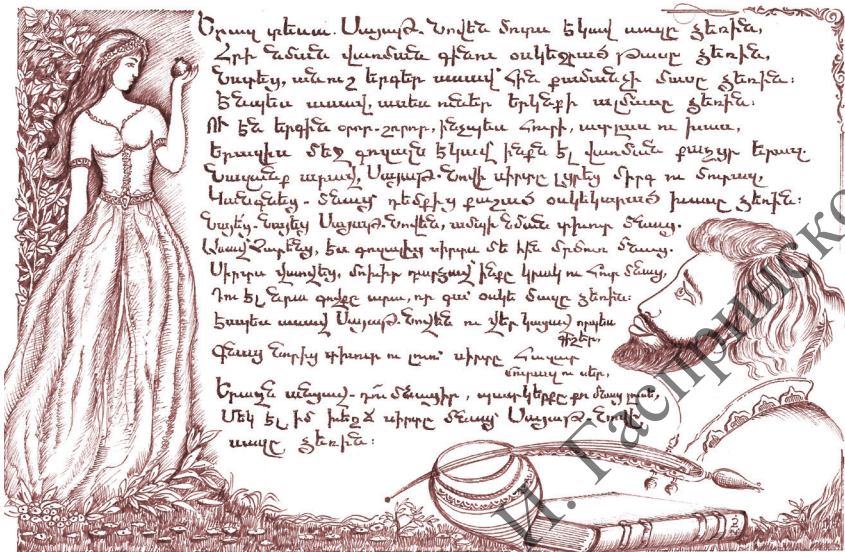 Երազ տեսա. Սայաթ-Նովեն մոտս եկավ սազը ձեռին,
Հրի նման վառման գինու օսկեջրած թասը ձեռին,
Նստեց, անուշ երգեր ասավ՝ հին քամանչի մասը ձեռին։
Էնպես ասավ, ասես ուներ երկնքի ալմասը ձեռին։
Ու էն երգին օրոր-շորոր, ինչպես հուրի, ու խաս,
Երազիս մեջ գոզալն եկավ՝ ինքն էլ վառման քաղցր երազ.
Նազանք արավ, Սայաթ-Նովի սիրտը լցրեց միրգ ու մուրազ,
Կանգնեց - մնաց դեմքից քաշած օսկեկարած խասը ձեռին։
Նայեց-նայեց Սայաթ-Նովեն, ամպի նման տխուր մնաց.
Ասավ՝ Չարենց, էս գոզալից սիրտս մե հին մրմուռ մնաց.
Սիրտս վառվեց, մոխիր դարձավ՝ ինքը կրակ ու հուր մնաց,
Դու էլ նրա գովքը արա, որ գա՝ օսկե մազը ձեռին։
Էսպես ասավ Սայաթ-Նովեն ու վեր կացավ որպես
գիշեր,
Գնաց նորից տխուր ու լուռ՝ սիրտը հազար
մուրազ ու սեր,
Երազն անցավ,- դուն մնացիր, պատկերքը քո մնաց լուսե,
Մեկ էլ իմ խեղճ սիրտը մնաց՝ Սայաթ-Նովի
սազը ձեռին։
И. Гаспринско